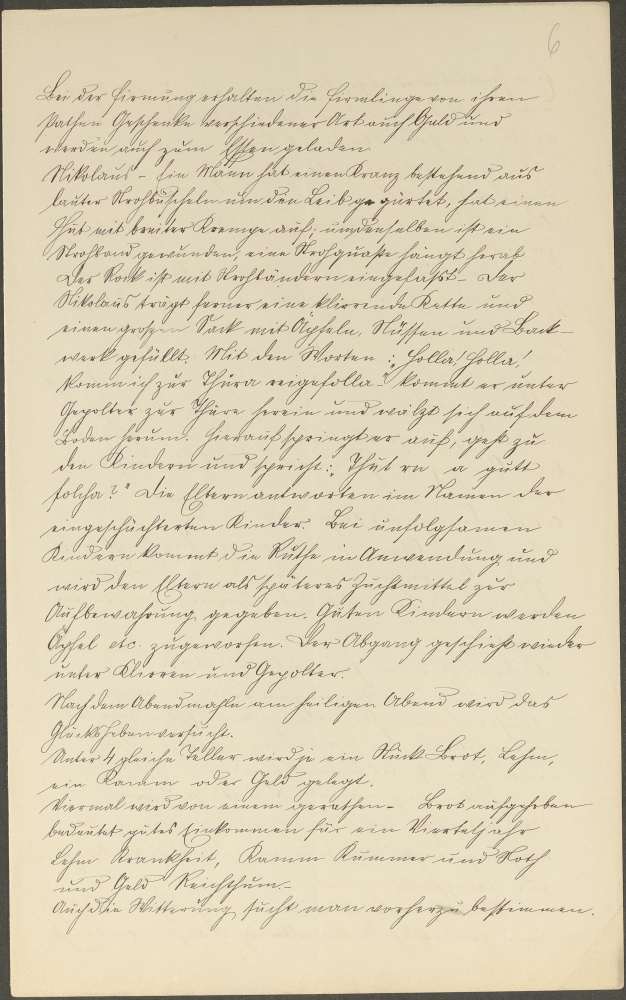 6
Bei der Firmung erhalten die Firmlinge von ihren
Pathen Geschenke verschiedener Art auch Geld und
werden auch zum Essen geladen
Nikolaus - Ein Mann hat einen Kranz bestehend aus
lauter Strohbüscheln um den Leib gegürtet, hat einen
Hut mit breiter Krempe auf; um denselben ist ein
Strohband gewunden, eine Strohquaste hängt herab
Der Rock ist mit Strohbändern eingefasst - Der
Nikolaus trägt ferner eine klirrende Kette und
einen grossen Sack mit Äpfeln, Nüssen und Back-
werk gefüllt. Mit den Worten: „Holla! Holla!
komm ich zur Thüra reigefolla" kommt er unter
Gepolter zur Thüre herein und wälzt sich auf dem
Boden herum. Hierauf springt er auf, geht zu
den Kindern und spricht: „Thut ra a gutt
folcha?" Die Eltern antworten im Namen der
eingeschüchterten Kinder. Bei unfolgsamen
Kindern kommt die Ruthe in Anwendung und
wird den Eltern als späteres Zuchtmittel zur
Aufbewahrung gegeben. Guten Kindern werden
Äpfel etc. zugeworfen. Der Abgang geschieht wieder
unter Klirren und Gepolter.
Nach dem Abendmahle am heiligen Abend wird das
Glücksheben versucht.
Unter 4 gleiche Teller wird je ein Stück Brot, Lehm,
ein Kamm oder Geld gelegt.
Viermal wird von einem gerathen - Brot aufgehoben
bedeutet gutes Einkommen für ein Vierteljahr
Lehm Krankheit, Kamm Kummer und Noth
und Geld Reichthum. -
Auch die Witterung sucht man vorherzu bestimmen.